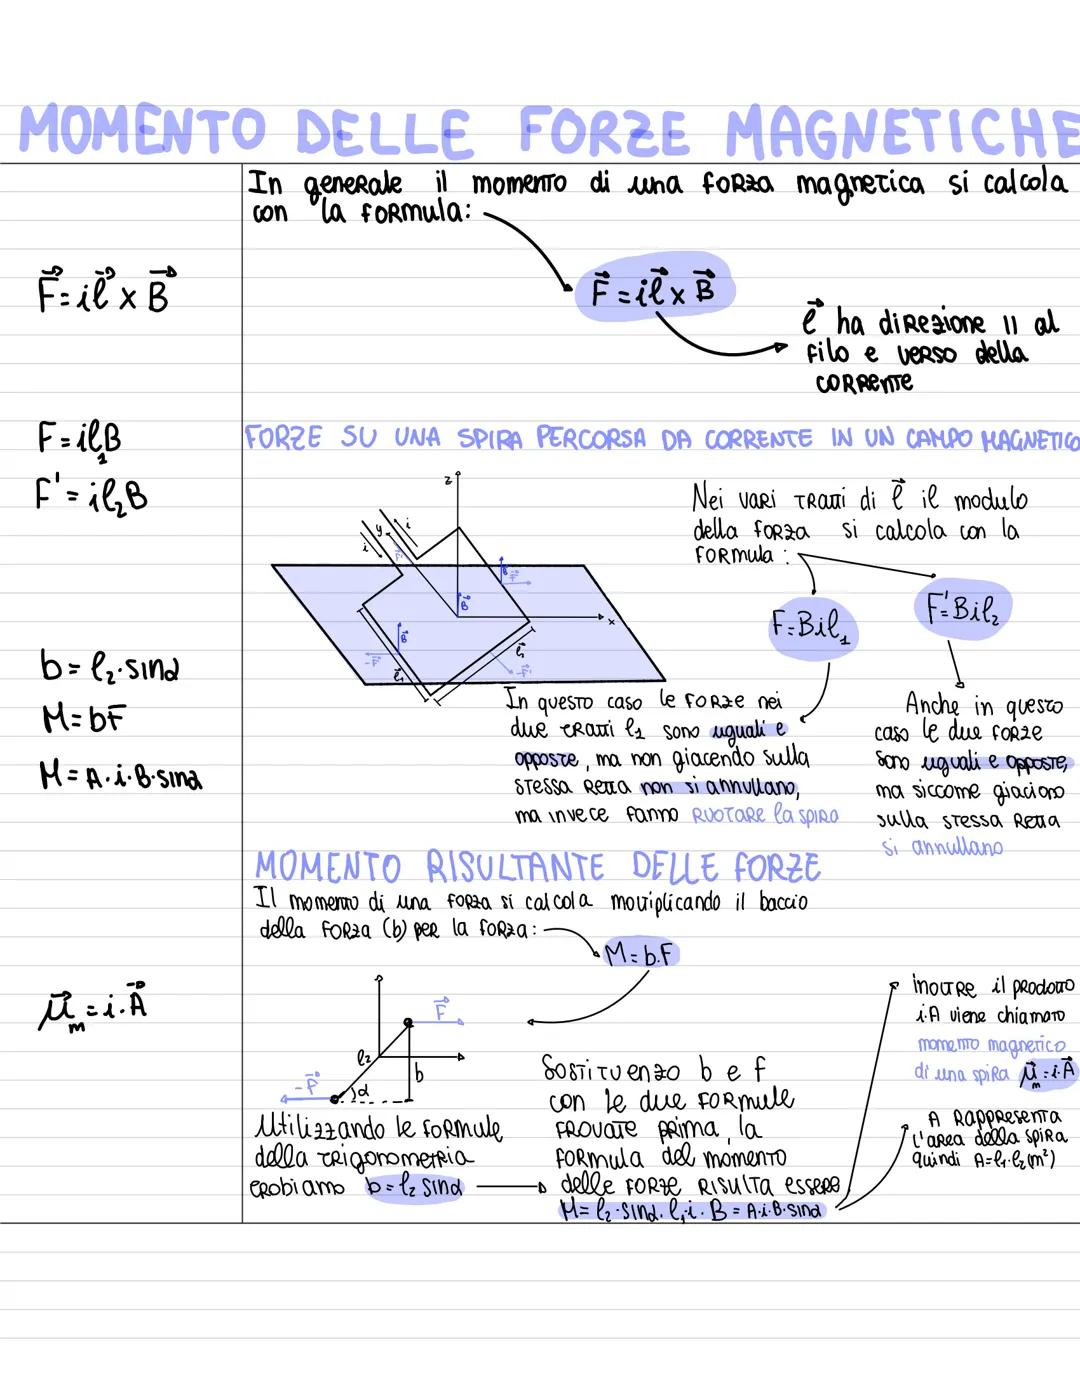 MOMENTO DELLE FORZE MAGNETICHE
In generale il momento di una forza magnetica si calcola
con la formula:
F⃗ = i l⃗ x B⃗
F⃗ = i l⃗ x B⃗
l⃗ ha direzione || al
filo e verso della
corrente
F = i l₁ B
F' = i l₂ B
FORZE SU UNA SPIRA PERCORSA DA CORRENTE IN UN CAMPO MAGNETICO
z
y
i
i
B⃗
B⃗
x
-F⃗
l⃗₁
Nei vari tratti di l⃗ il modulo
della forza si calcola con la
formula:
F = B i l₁
F' = B i l₂
In questo caso le forze nei
due tratti l₁ sono uguali e
opposte, ma non giacendo sulla
stessa retta non si annullano,
ma invece fanno ruotare la spira
Anche in questo
caso le due forze
sono uguali e opposte,
ma siccome giaciono
sulla stessa retta
si annullano
b = l₂ · sinα
M = bF
M = A · i · B · sinα
MOMENTO RISULTANTE DELLE FORZE
Il momento di una forza si calcola moltiplicando il baccio
della forza (b) per la forza:
M = b·F
μ⃗m = i · A⃗
F⃗
l₂
b
-F⃗
α
Utilizzando le formule
della trigonometria
trobiamo b = l₂ sinα
Sostituenzo b e f
con le due formule
trovate prima, la
formula del momento
delle forze risulta essere
M = l₂ · sinα · l₁ · i · B = A · i · B · sinα
inoltre il prodotto
i·A viene chiamato
momento magnetico
di una spira μ⃗m = i·A⃗
A rappresenta
l'area della spira
quindi A = l₁ · l₂ (m²)